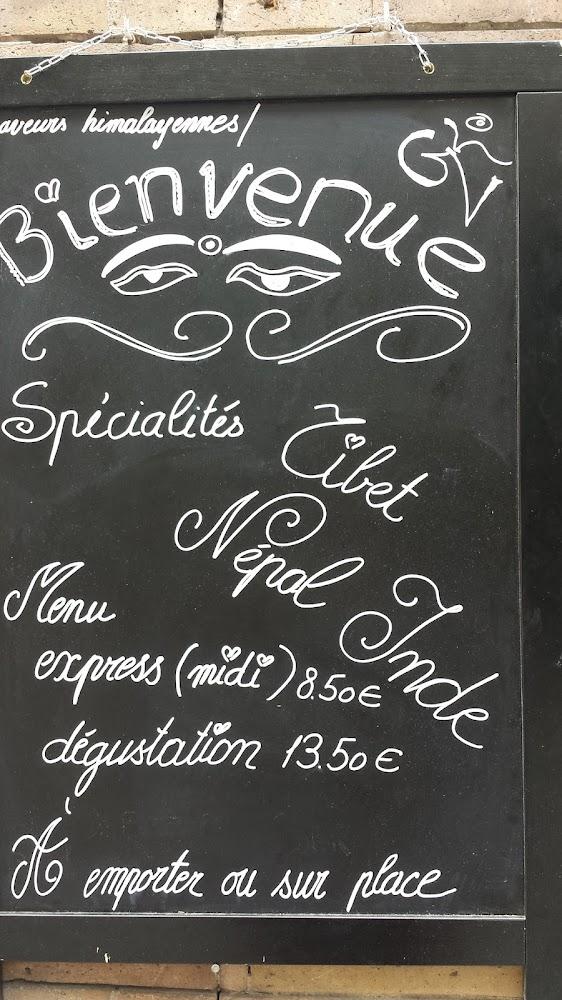 aveurs himalayennes/
Bienvenue
Spécialités
Tibet
Népal
Inde
Menu
express (midi) 8.50€
dégustation 13.50€
À emporter ou sur place